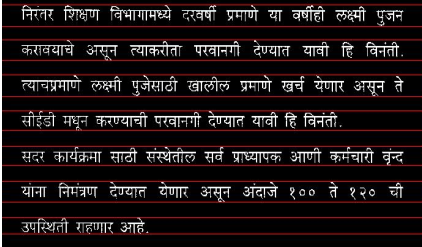 निरंतर शिक्षण विभागामध्ये दरवर्षी प्रमाणे या वर्षीही लक्ष्मी पुजन
करावयाचे असून त्याकरीता परवानगी देण्यात यावी हि विनंती.
त्याचप्रमाणे लक्ष्मी पुजेसाठी खालील प्रमाणे खर्च येणार असून ते
सीईडी मधून करण्याची परवानगी देण्यात यावी हि विनंती.
सदर कार्यक्रमा साठी संस्थेतील सर्व प्राध्यापक आणी कर्मचारी वृंन्द
यांना निमंत्रण देण्यात येणार असून अंदाजे १०० ते १२० ची
उपस्थिती राहणार आहे.